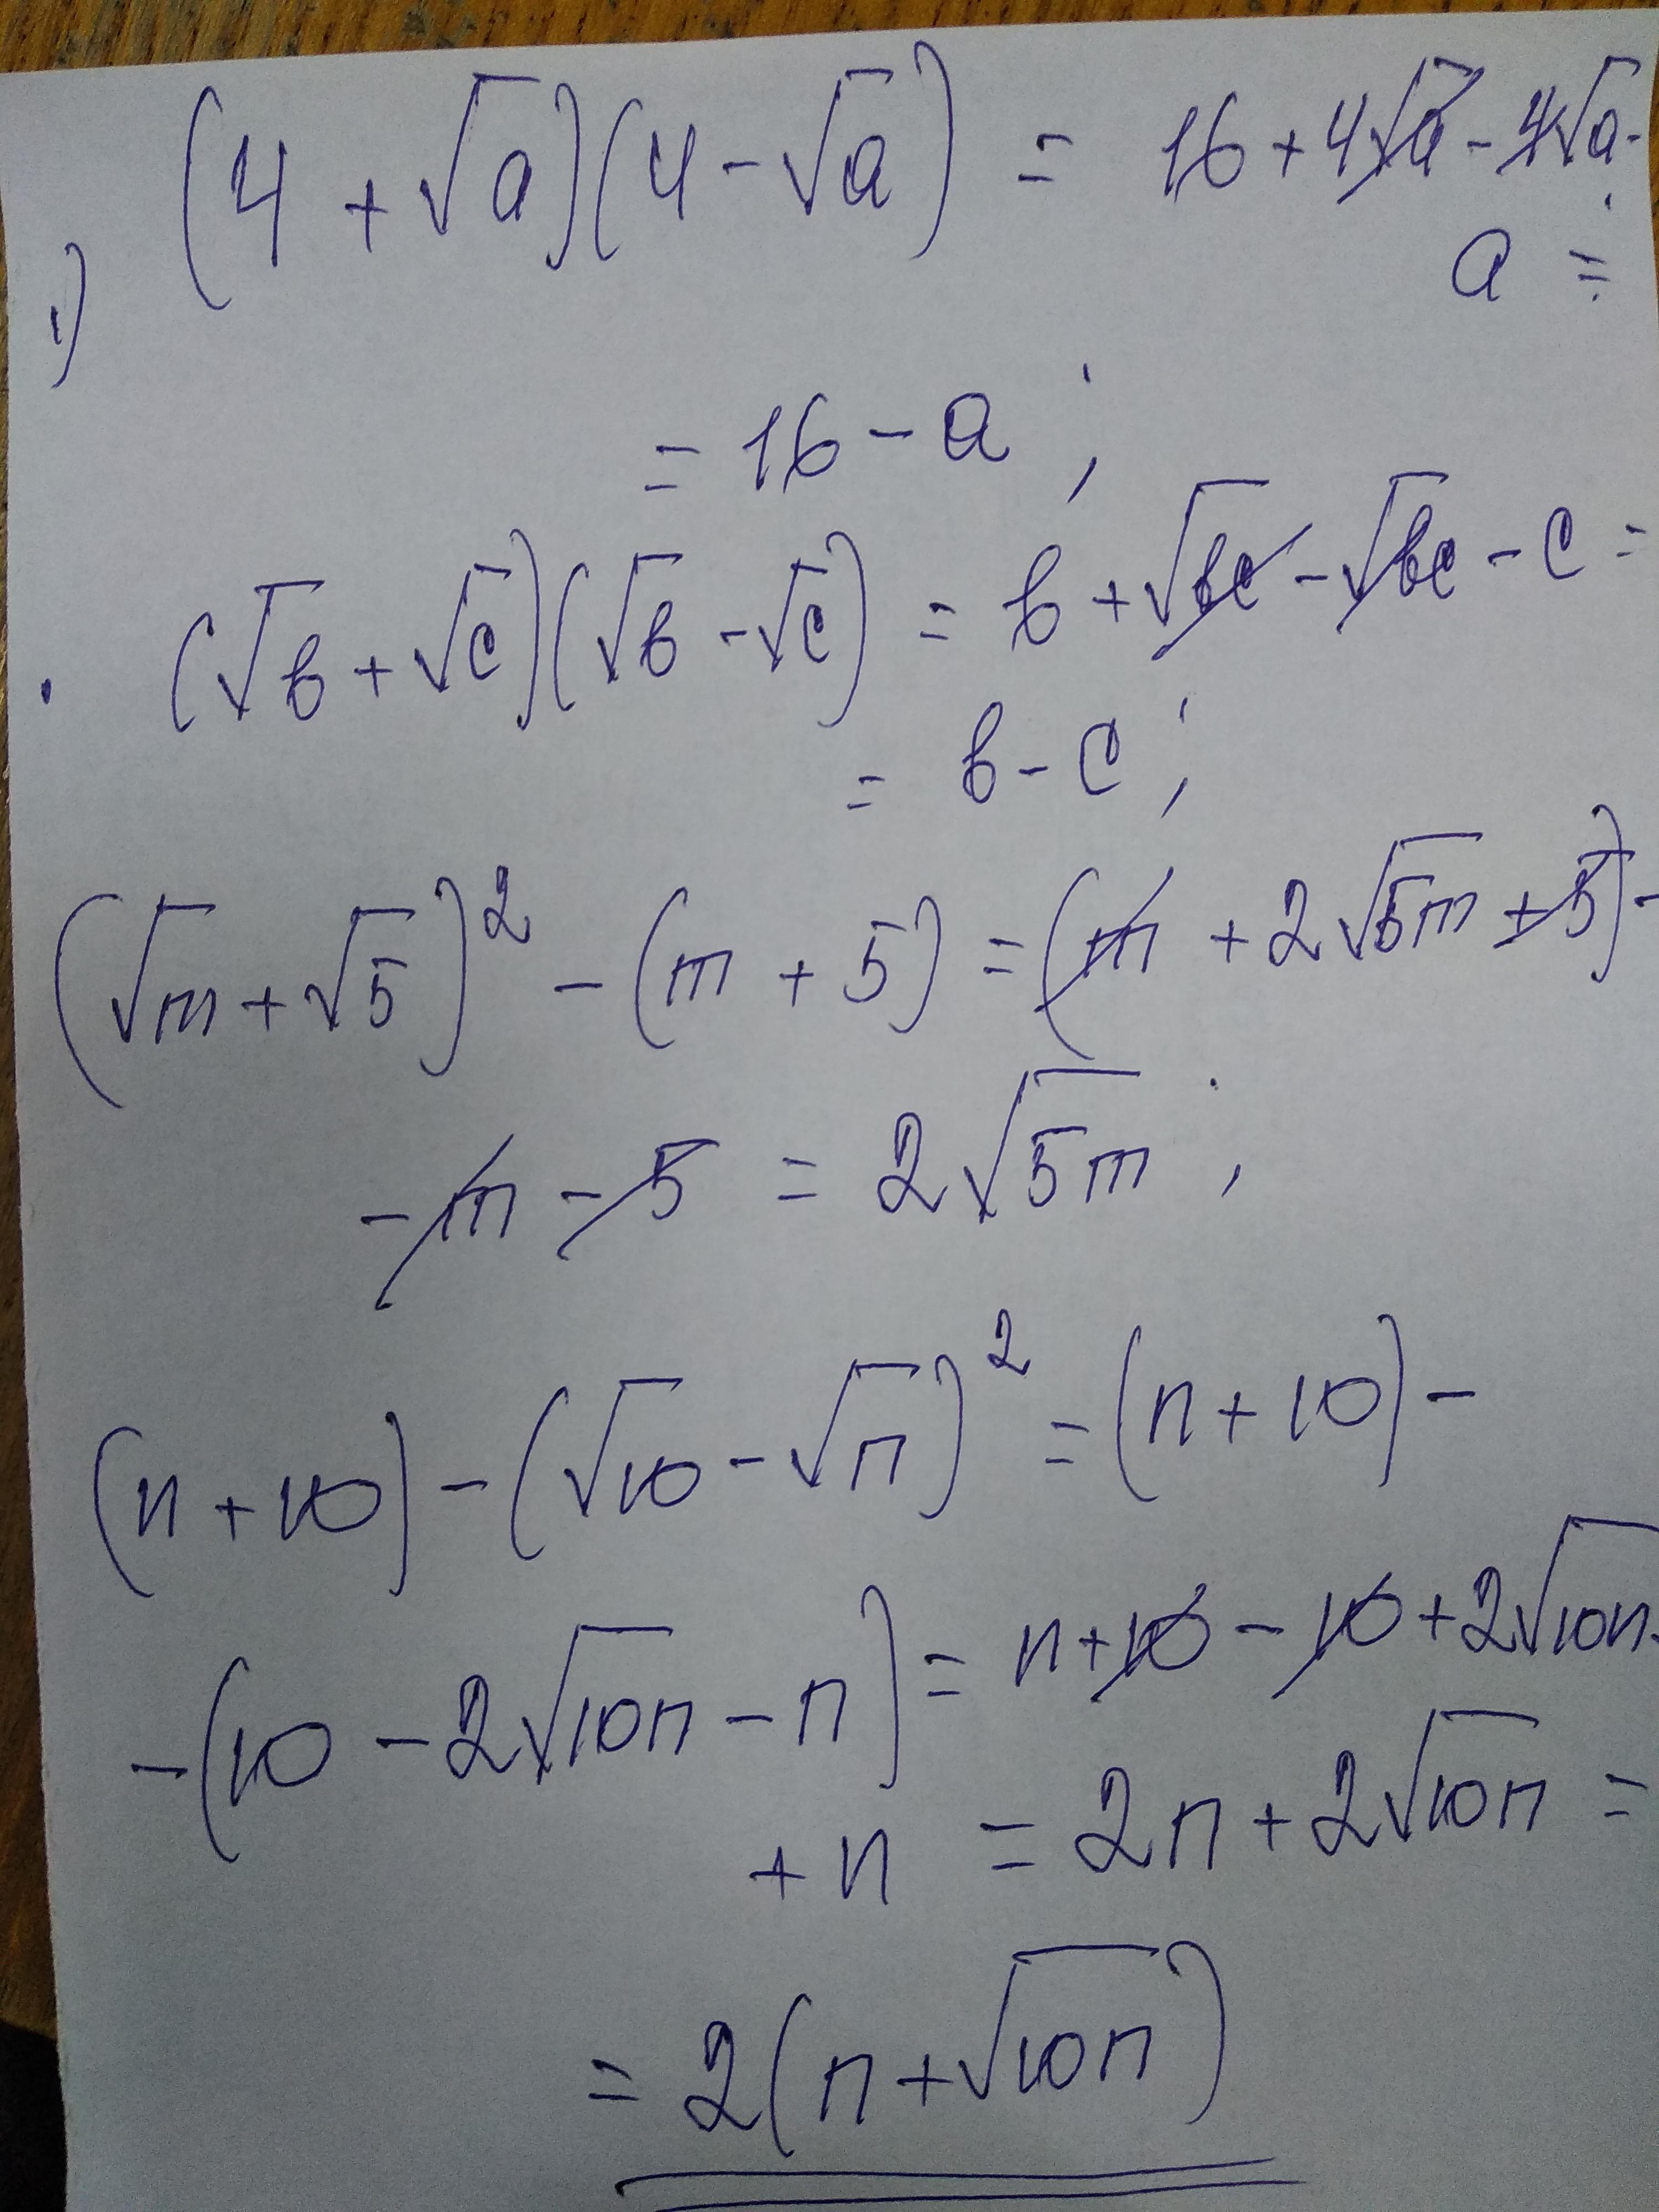 (4 + √a)(4 - √a) = 16 + 4√a - 4√a -
1)
a =
= 16 - a ;
(√b + √c)(√b - √c) = b + √bc - √bc - c =
= b - c ;
(√m + √5)² - (m + 5) = (m + 2√5m + 5) -
- m - 5 = 2√5m ;
(n + 10) - (√10 - √n)² = (n + 10) -
- (10 - 2√10n - n) = n + 10 - 10 + 2√10n
+ n = 2n + 2√10n =
= 2(n + √10n)